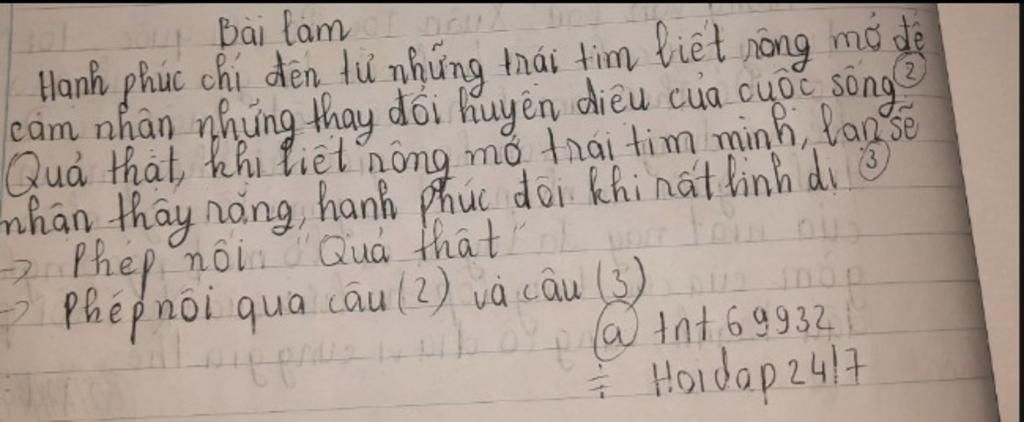 Bài làm
Hạnh phúc chỉ đến từ những trái tim biết rộng mở để
cảm nhận những thay đổi huyền diệu của cuộc sống (2)
Quả thật, khi biết rộng mở trái tim mình, bạn sẽ
nhận thấy rằng, hạnh phúc đôi khi rất bình dị (3)
→ Phép nối "Quả thật"
→ Phép nối qua câu (2) và câu (3)
@ tnt69932
÷ Hoidap247